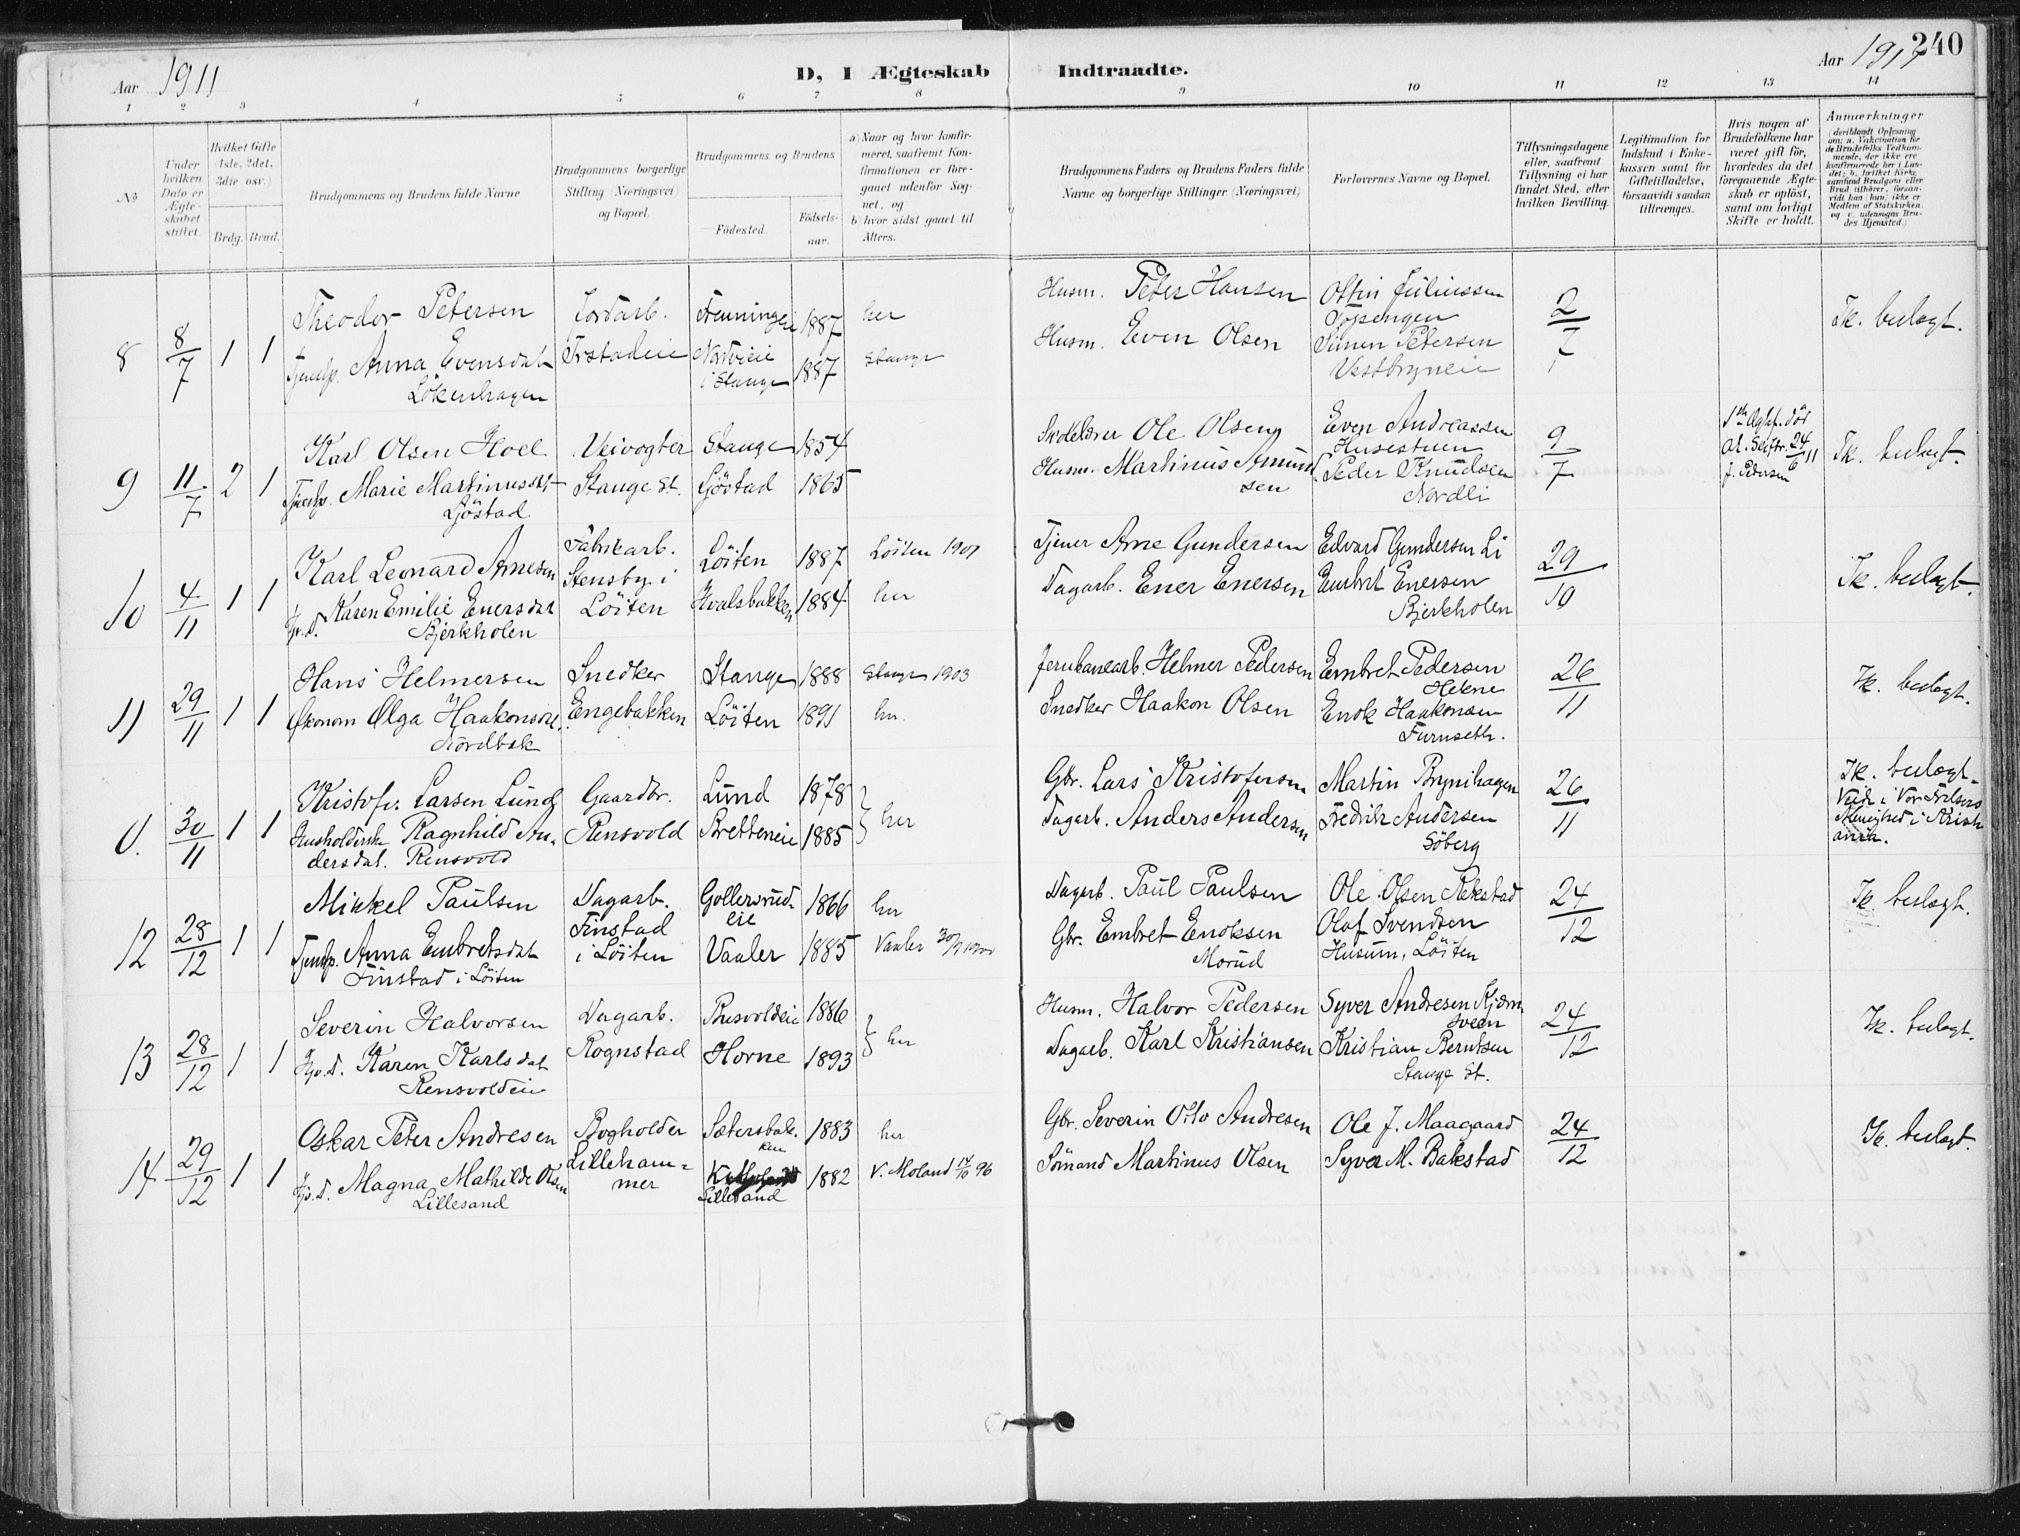 240
Aar 1911
D, I Ægteskab Indtraadte.
Aar 1911
1 2 3 4 5 6 7 8 9 10 11 12 13 14
No
Under hvilken Dato er Ægteskabet stiftet.
Hvilket Gifte (1ste, 2det, 3die osv.)
Brdg. Brud.
Brudgommens og Brudens fulde Navne
Brudgommens borgerlige Stilling (Næringsvei) og Bopæl.
Brudgommens og Brudens
Fødested. Fødselsaar.
a) Naar og hvor konfirmeret, saafremt Konfirmationen er foregaaet udenfor Sognet, og
b) hvor sidst gaaet til Alters.
Brudgommens Faders og Brudens Faders fulde Navne og borgerlige Stillinger (Næringsvei)
Forlovernes Navne og Bopæl.
Tillysningsdagene eller, saafremt Tillysning ei har fundet Sted, efter hvilken Bevilling.
Legitimation for Indskud i Enkekassen samt for Giftetilladelse, forsaavidt saadan tiltrænges.
Hvis nogen af Brudefolkene har været gift før, hvorledes da det foregaaende Ægteskab er opløst, samt om lovligt Skifte er holdt.
Anmærkninger
8 8/7 1 1 Theodor Petersen Jordarb. 1887 her Husm. Peter Hansen Ottin Juliussen 2/7 Tk. beslagt.
Tjenstp. Anna Evensdat Løkenhagen 1887 Stange Husm. Even Olsen Simen Petersen Vestbryneie
i Stange
9 11/7 2 1 Karl Olsen Hoel Veivogter Stange 1854 Skolelærer Ole Olsen Even Andreassen Husestuen 9/7 Tk. beslagt.
Tjenstp. Marie Martinusdat Gjøstad Stange St. Gjøstad 1865 Husm. Martinus Amundsen Peder Knudsen Nordli
J. Pedersen
10 4/11 1 1 Karl Leonard Arnesen Fabrikarb. Stensby i Løiten Løiten 1887 Løiten 1901 Tjener Arne Gundersen Edvard Gundersen Li 29/10 Tk. beslagt.
Karen Emilie Enersdat Bjerkholen Hvalsbakken 1884 her Dagarb. Ener Enersen Embret Enersen Bjerkholen
11 29/11 1 1 Hans Helmersen Snedker Engebakken Stange 1888 Stange 1903 Jernbanearb. Helmer Pedersen Embret Pedersen Hekne 26/11 Tk. beslagt.
Økonom Olga Haakonsen Nordbæk Løiten 1891 her. Snedker Haakon Olsen Enok Haakonsen Furuseth.
0. 30/11 1 1 Kristofer Larsen Lund Gaardbr. Rensvold Lund 1878 her Gbr. Lars Kristofersen Martin Brynihagen 26/11 Tk. beslagt.
Husholderske Ragnhild Andersdat. Rensvold Bretteneie 1885 Dagarb. Anders Andersen Fredrik Andersen Søberg Viet i Vor Frelsers Menighed i Kristiania.
12 28/12 1 1 Mikkel Paulsen Dagarb. Finstad i Løiten Gollersrudeie 1866 her Dagarb. Paul Paulsen Ole Olsen Bakstad 24/12 Tk. beslagt.
Tjenstp. Anna Embretsdat Finstad i Løiten Vaaler 1885 Vaaler 30/9 1900 Gbr. Embret Enoksen Morud Olaf Svendsen Husum, Løiten
13 28/12 1 1 Severin Halvorsen Dagarb. Rognstad Rusvoldeie 1886 her Husm. Halvor Pedersen Syver Andresen 24/12 Tk. beslagt.
Hjv. d. Karen Karlsdat Rensvoldeie Horne 1893 Dagarb. Karl Kristiansen Kristian Berntsen Stange St.
14 29/12 1 1 Oskar Peter Andresen Bogholder Lillehammer Sætersbakken 1883 her Gbr. Severin Otto Andresen Ole J. Maagaard 24/12 Tk. beslagt.
Hjv. d. Magna Mathilde Olsen Lillesand Lillesand 1882 V. Moland 14/10 96 Sømand Martinus Olsen Syver M. Bakstad